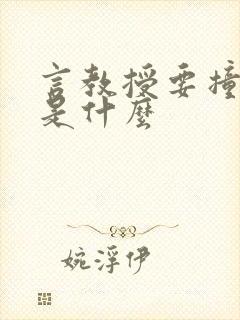 言教授要撞
是什麼
婉浮伊